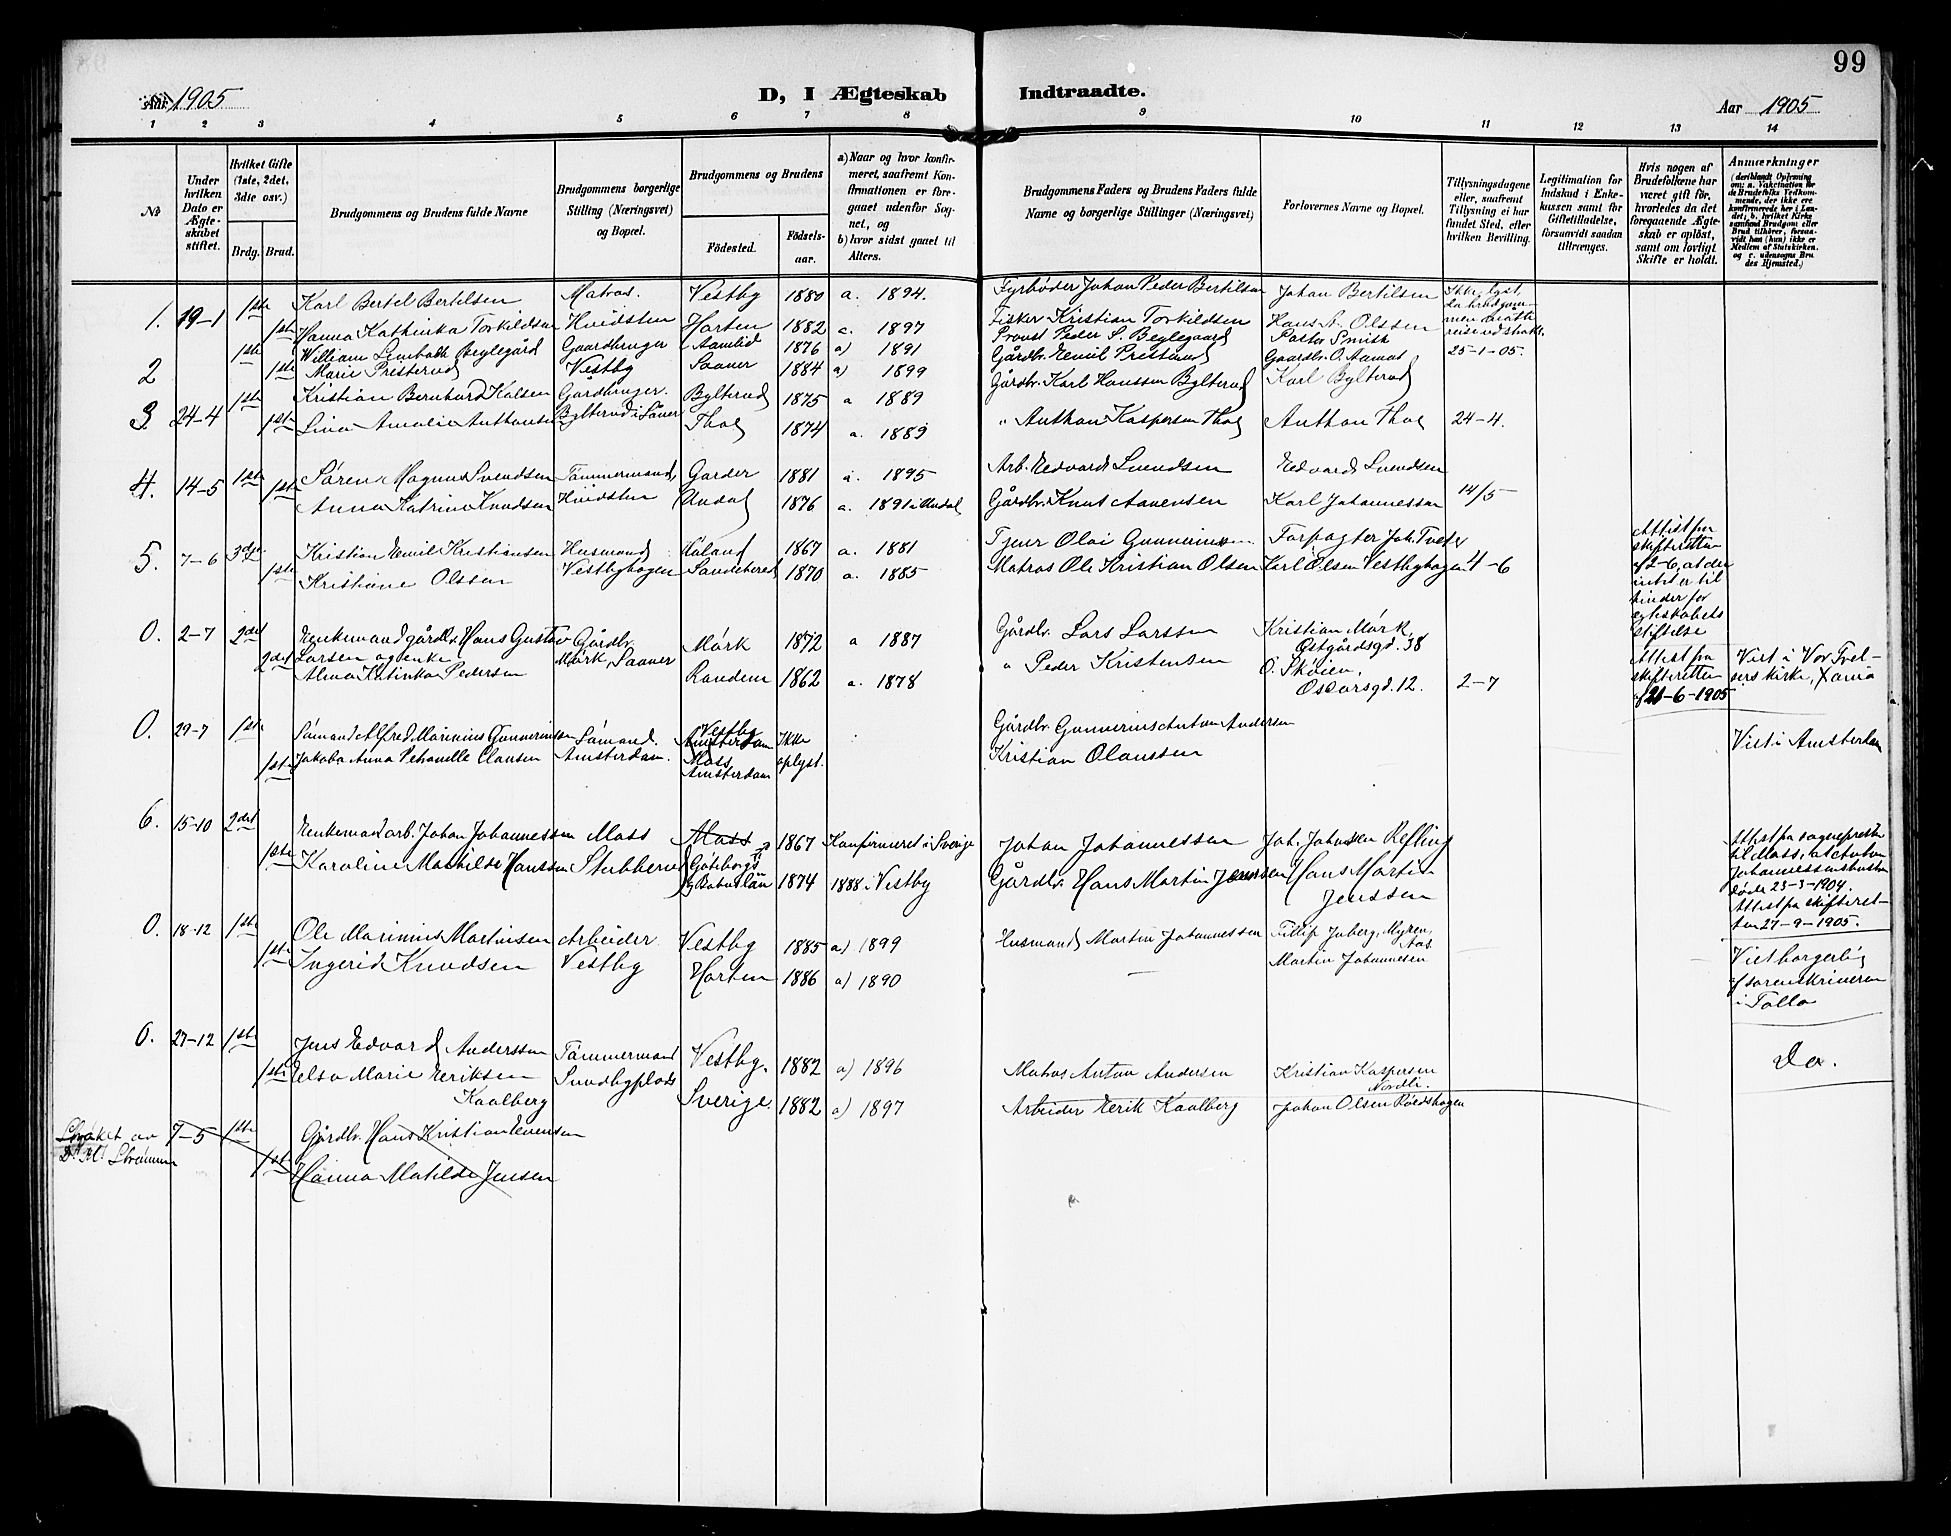 99
Aar 1905
D, I Ægteskab Indtraadte.
Aar 1905
1 2 3 4 5 6 7 8 9 10 11 12 13 14
№
Under hvilken Dato er Ægteskabet stiftet.
Hvilket Gifte (1ste, 2det, 3die osv.)
Brdg. Brud.
Brudgommens og Brudens fulde Navne
Brudgommens borgerlige Stilling (Næringsvei) og Bopæl.
Brudgommens og Brudens
Födested.
Födsels-aar.
a) Naar og hvor konfirmeret, saafremt Konfirmationen er foregaaet udenfor Sognet, og
b) hvor sidst gaaet til Alters.
Brudgommens Faders og Brudens Faders fulde Navne og borgerlige Stillinger (Næringsvei)
Forlovernes Navne og Bopæl.
Tillysningsdagene eller, saafremt Tillysning ei har fundet Sted, efter hvilken Bevilling.
Legitimation for Indskud i Enkekassen samt for Giftetilladelse, forsaavidt saadan tiltrænges.
Hvis nogen af Brudefolkene har været gift för, hvorledes da det foregaaende Ægteskab er oplöst, samt om lovligt Skifte er holdt.
Anmærkninger
1. 19-1 1ste Karl Bertel Bertilsen Matros. Vestby 1880 a. 1894. Fyrbøder Johan Peder Bertilsen Johan Bertilsen Ikke lyst,
1ste Hanna Kathinka Torkildsen Hvidsten Horten 1882 a. 1897 Fisker Kristian Torkildsen Hans A. Olssen
1ste William Beylegård Gaardbruger Aamlid 1876 a) 1891 Provst Peder S. Beylegaard Pastor Smith
2 1ste Marie Presterud Vestby Saaner 1884 a) 1899 Gårdbr. Emil Presterud Gaardbr. O. Aamot 25-1-05.
3. 24-4 1ste Kristian Bernhard Kalsen Gårdbruger. Bylterud 1875 a 1889 Gårdbr. Karl Hanssen Bylterud Karl Bylterud
1ste Lina Amalie Anthonsen Bylterud i Såner Thol 1874 a. 1889 " Anthon Kaspersen Thol Anthon Thol 24-4.
4. 14-5 1ste Søren Magnus Svendsen Tømmermand, Garder 1881 a. 1895 Arb. Edvard Svendsen Edvard Svendsen
1ste Anna Katrine Knudsen Hvidsten 1876 a. 1891 i Gårdbr. Knut Karl Johannessen 14/5
5. 7-6 3die Kristian Emil Kristiansen Husmand 1867 a. 1881 Tjener Olai Gunnerius Forpagter Joh. Tveter
1ste Kristiane Olsen Vestbyhagen Sandeherred 1870 a. 1885 Matros Ole Kristian Olsen Karl Olsen Vestbyhagen 4-6
Attest fra skifteretten af 2-6, at der intet er til hinder for egteskabets stiftelse
0. 2-7 2det Enkemand gårdbr. Hans Gustav Larsen og enke Gårdbr. Mørk 1872 a 1887 Gårdbr. Lars Larssen Kristian Mørk, Østgårdsgd. 38
2det Alma Katinka Pedersen Mørk, Saaner Randem 1862 a. 1878 " Peder Kristensen O. Skøien, Oscarsgd. 12. 2-7
Attest fra skifteretten af 21-6-1905
Viet i Vor Frelsers kirke, Xania
0. 29-7 1ste Sømand Alfred Marinius Gunneriusen Sømand. Vestby Ikke Gårdbr. Gunnerius Anton Andersen
1ste Jakoba Anna Petronelle Clausen Amsterdam. Amsterdam oplyst. Kristian Olaussen
Viet i Amsterdam
6. 15-10 2det Enkemand arb. Johan Johannessen Moss Moss 1867 Konfirmeret i Sverige Johan Johannessen Joh. Johansen Refling
1ste Karoline Mathilde Hanssen Stubberud Göteborgs og Bohus län 1874 1888 i Vestby Gårdbr. Hans Martin Jenssen Hans Martin Jenssen
Attest fra sognepresten til Moss, at Johannessens hustru døde 23-3-1904. Attest fra skifteretten 27-9-1905.
0. 18-12 1ste Ole Marinius Martinsen Arbeider Vestby 1885 a) 1899 Husmand Martin Johannessen Fillip Juberg, Myren, Aas
1ste Ingerid Knudsen Vestby Horten 1886 a) 1890 — Martin Johannesen
Viet borgerlig af sorenskriveren i Follo
0. 27-12 1ste Jens Edvard Anderssen Tømmermand Vestby. 1882 a) 1896 Matros Anton Andersen Kristian Kaspersen Nordli.
1ste Elsa Marie Eriksen Kaalberg Sundbyplads Sverige. 1882 a) 1897 Arbeider Erik Kaalberg Johan Olsen Rødshagen
Do.
Strøket av 7-5 1ste Gårdbr. Hans Kristian Evensen
1ste Hanna Matilde Jensen